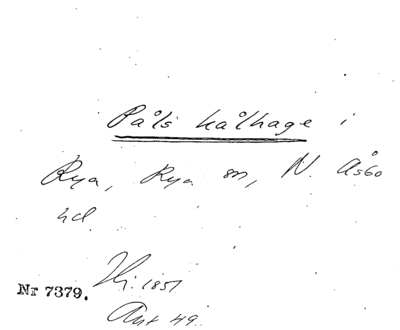 Påls kålhage i
Rya, Rya sn, N. Åsbo
hd.
Hj. 1851
Nr 7379.
Ant 49.